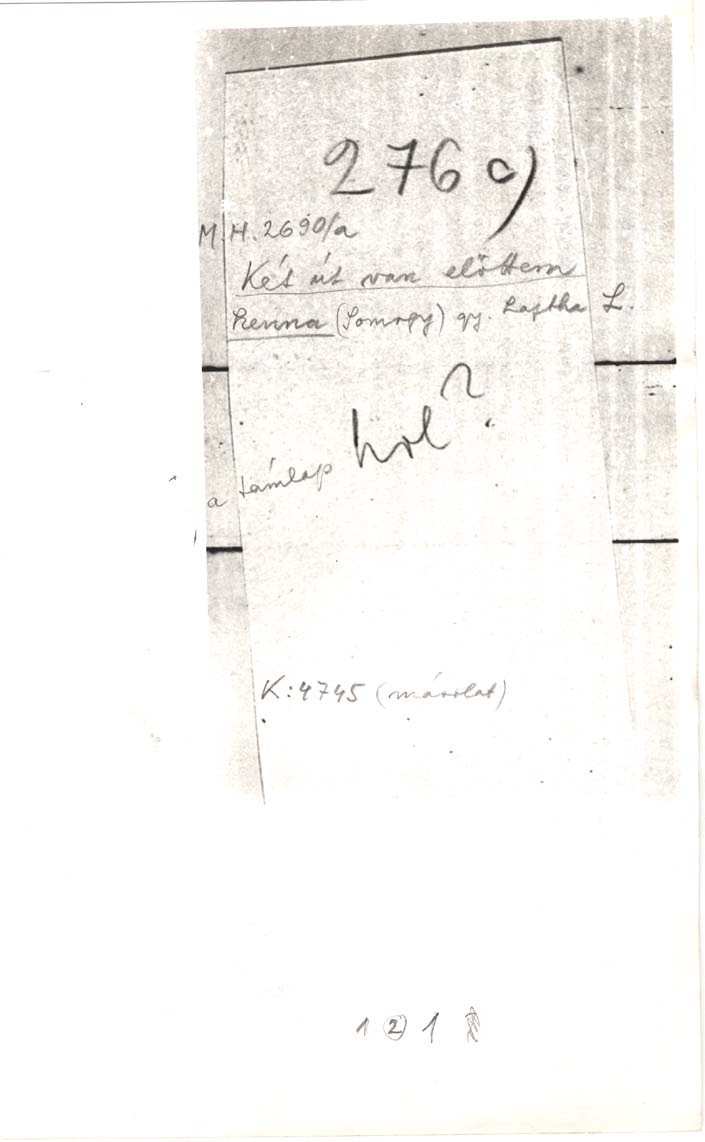 276 c)
M.H. 2690/a
Két út van előttem
Zenna (Somogy) gy. Lajtha L.
hol?
a támlap
K: 4745 (másolat)
1 2 1